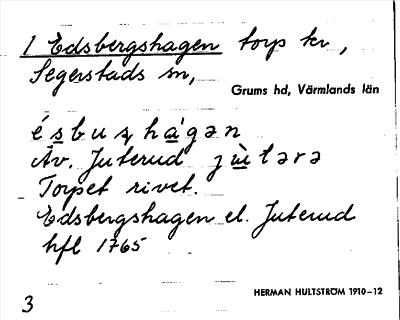 1 Edsbergshagen torp kr,
Segerstads sn,
Grums hd, Värmlands län
é s b u ʂ h a ́ g ə n
Äv. Juterud j ù t ə r ə
Torpet rivet.
Edsbergshagen el. Juterud
hfl 1765
HERMAN HULTSTRÖM 1910-12
3